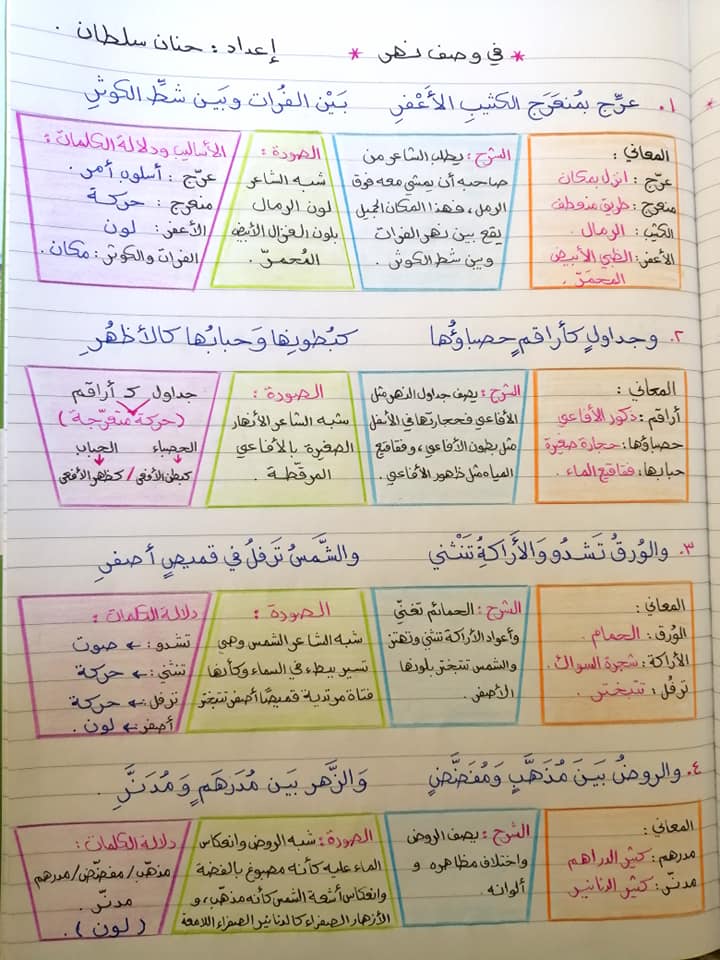 * في وصف نهر * إعداد : حنان سلطان .
١. عرِّج بمُنعَرَج الكثيبِ الأَعْفرِ بَيْن الفُرات وبَين شطِّ الكوثرِ
المعاني :
عرِّج : انزل بمكان
منعرج: طريق منعطف
الكثيب: الرمال .
الأعفر: الظبي الأبيض
المحمَرّ .
الشرح : يطلب الشاعر من
صاحبه أن يمشي معه فوق
الرمل ، فهذا المكان الجميل
يقع بين نهر الفرات
وبين شط الكوثر .
الصورة :
شبه الشاعر
لون الرمال
بلون الغزال الأبيض
المُحمرّ .
الأساليب ودلالة الكلمات :
عرّج : أسلوب أمر .
منعرج : حركة
الأعفر : لون
الفرات والكوثر : مكان .
٢. وجداولٍ كأراقمٍ حصباؤُها كبُطونِها وَحبابُها كالأظهُرِ
المعاني :
أراقم : ذكور الأفاعي
حصباؤها: حجارة صغيرة
حبابها: فقاقيع الماء .
الشرح : يصف جداول النهر مثل
الأفاعي فحجارتها في الأسفل
مثل بطون الأفاعي ، وفقاقيع
المياه مثل ظهور الأفاعي .
الصورة :
شبه الشاعر الأنهار
الصغيرة بالأفاعي
المرقّطة .
جداول كـ أراقم
(حركة متعرّجة)
الحصباء الحباب
كبطن الأفعى / كظهر الأفعى
٣. والوُرقُ تَشدُو وَالأَراكةُ تَنْثني والشَّمسُ تَرفلُ في قميصٍ أصفرِ
المعاني :
الوُرق : الحمام .
الأراكة : شجرة السواك .
ترفُل : تتبختر .
الشرح : الحمائم تغنّي
وأعواد الأراكة تنثني وتهتز
والشمس تتبختر بلونها
الأصفر .
الصورة :
شبه الشاعر الشمس وهي
تسير ببطء في السماء وكأنها
فتاة مرتدية قميصًا أصفر تتبختر
دلالة الكلمات :
تشدو : ← صوت
تنثني : ← حركة
ترفل : ← حركة
أصفر ← لون .
٤. والروضُ بَينَ مُذهَّبٍ وَمُفَضَّضٍ وَالزَّهر بَين مُدَرهَمٍ وَمُدَنَّرِ .
المعاني :
مدرهم : كثير الدراهم
مدنّر : كثير الدنانير
الشرح : يصف الروض
واختلاف مظاهره و
ألوانه .
الصورة : شبه الروض وانعكاس
الماء عليه كأنه مصبوغ بالفضة
وانعكاس أشعة الشمس كأنه مذهّب ، و
الأزهار الصفراء كالدنانير الصفراء اللامعة
دلالة الكلمات :
مذهّب / مفضّض / مدرهم
مدنّر .
( لون ) .